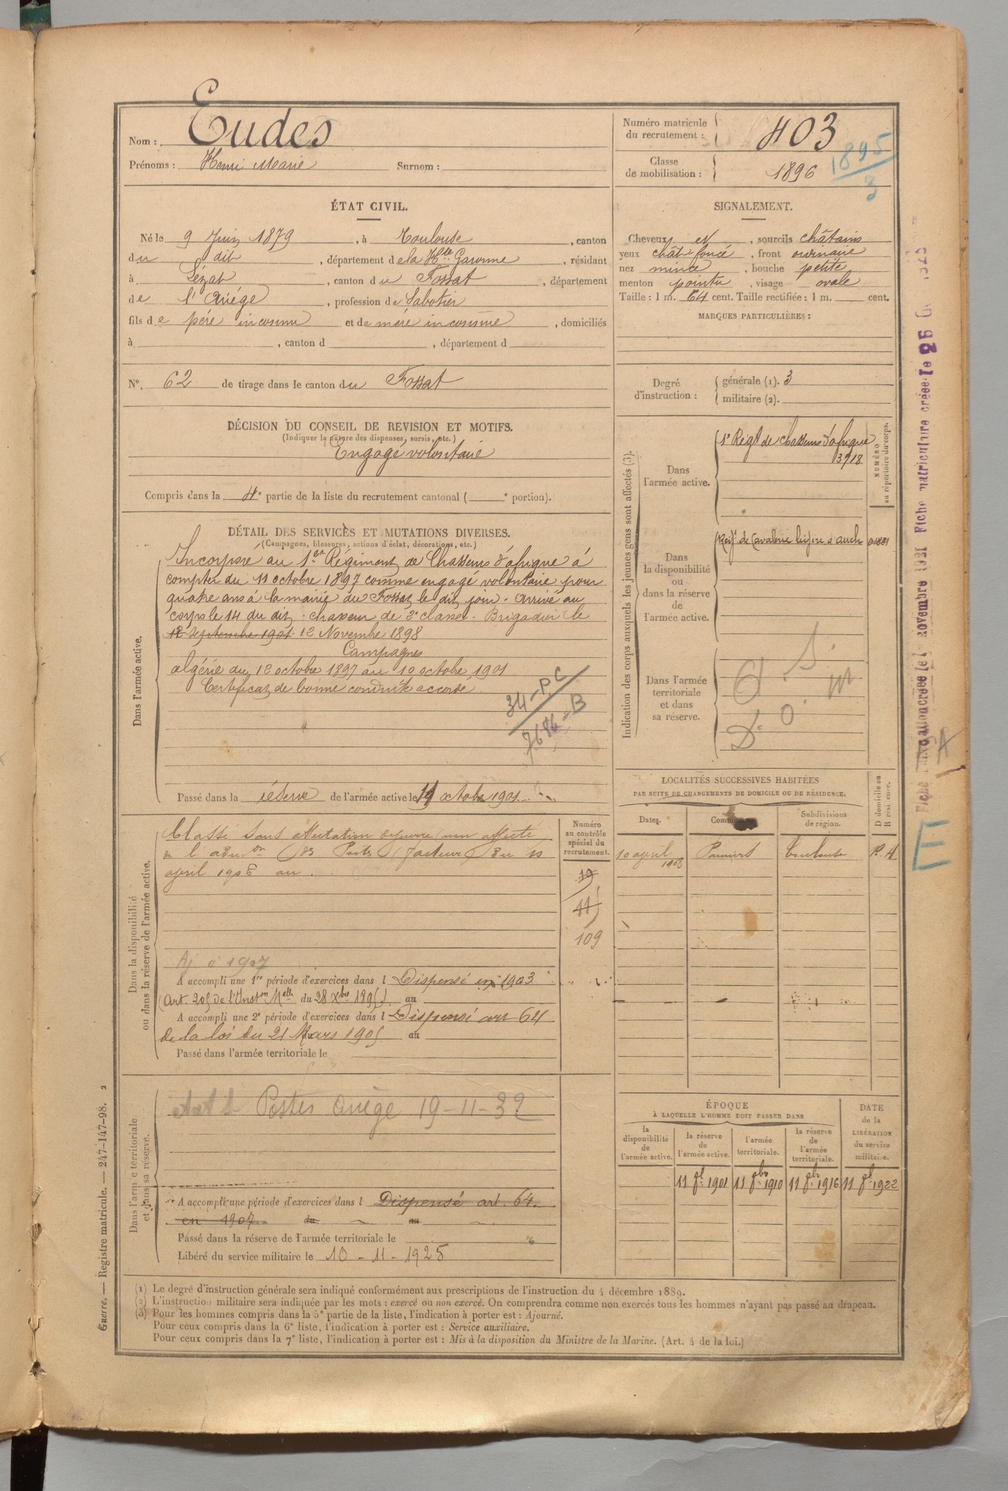 Nom : Eudes
Prénoms : Henri Marie Surnom :
Numéro matricule du recrutement : 403
Classe de mobilisation : 1896
1895
3
ÉTAT CIVIL.
Né le 9 Juin 1879, à Toulouse, canton
du dit, département de la Hte Garonne, résidant
à Lézat, canton du Fossat, département
de l'Ariège, profession de Sabotier
fils de père inconnu et de mère inconnue, domiciliés
à , canton d , département d
N° 62 de tirage dans le canton du Fossat
SIGNALEMENT.
Cheveux et , sourcils châtains
yeux chât. foncé, front ordinaire
nez mince, bouche petite
menton pointu, visage ovale
Taille : 1 m. 64 cent. Taille rectifiée : 1 m. cent.
MARQUES PARTICULIÈRES :
Degré d'instruction : générale (1). 3
militaire (2).
DÉCISION DU CONSEIL DE REVISION ET MOTIFS.
(Indiquer la nature des dispenses, sursis, etc.)
Engagé volontaire
Compris dans la 4e partie de la liste du recrutement cantonal ( e portion).
DÉTAIL DES SERVICES ET MUTATIONS DIVERSES.
(Campagnes, blessures, actions d'éclat, décorations, etc.)
Dans l'armée active.
Incorporé au 1er Régiment de Chasseurs d'afrique à
compter du 11 octobre 1897 comme engagé volontaire pour
quatre ans à la mairie du Fossat le dit jour. arrivé au
corps le 14 du dit. chasseur de 2e classe. Brigadier le
12 Septembre 1901 12 Novembre 1898
Campagnes
algérie du 12 octobre 1897 au 10 octobre 1901
Certificat de bonne conduite accordé
34-PC
7686-B
Passé dans la réserve de l'armée active le 11 octobre 1901
Indication des corps auxquels les jeunes gens sont affectés (3).
NUMÉRO au répertoire du corps.
Dans l'armée active.
1er Régt de chasseurs d'afrique
3718
Dans la disponibilité ou dans la réserve de l'armée active.
Dans l'armée territoriale et dans sa réserve.
Dans la disponibilité ou dans la réserve de l'armée active.
Classé dans affectation
april 1906 au
Numéro au contrôle spécial du recrutement.
19
44
109
1907
A accompli une 1re période d'exercices dans l Dispensé en 1903
A accompli une 2e période d'exercices dans l Dispensé art 64
de la loi du 21 Mars 1905 au
Passé dans l'armée territoriale le
LOCALITÉS SUCCESSIVES HABITÉES
PAR SUITE DE CHANGEMENTS DE DOMICILE OU DE RÉSIDENCE.
Dates. Communes. Subdivisions de région. D domicile ou R résidence.
10 april 1903 Pamiers Toulouse R
Dans l'armée territoriale et dans sa réserve.
Postes Ariège 19-11-32
A accompli une période d'exercices dans l Dispensé art. 64.
en 1907 du au
Passé dans la réserve de l'armée territoriale le
Libéré du service militaire le 10 - 11 - 1925
ÉPOQUE
À LAQUELLE L'HOMME DOIT PASSER DANS
la disponibilité de l'armée active. la réserve de l'armée active. l'armée territoriale. la réserve de l'armée territoriale.
DATE de la LIBÉRATION du service militaire.
11 8bre 1901 11 8bre 1910 11 8bre 1916 11 8bre 1922
(1) Le degré d'instruction générale sera indiqué conformément aux prescriptions de l'instruction du 4 décembre 1889.
(2) L'instruction militaire sera indiquée par les mots : exercé ou non exercé. On comprendra comme non exercés tous les hommes n'ayant pas passé au drapeau.
(3) Pour les hommes compris dans la 5e partie de la liste, l'indication à porter est : Ajourné.
Pour ceux compris dans la 6e liste, l'indication à porter est : Service auxiliaire.
Pour ceux compris dans la 7e liste, l'indication à porter est : Mis à la disposition du Ministre de la Marine. (Art. 4 de la loi.)
Guerre. — Registre matricule. — 247-147-98. 2
Fiche matriculaire créée le
E